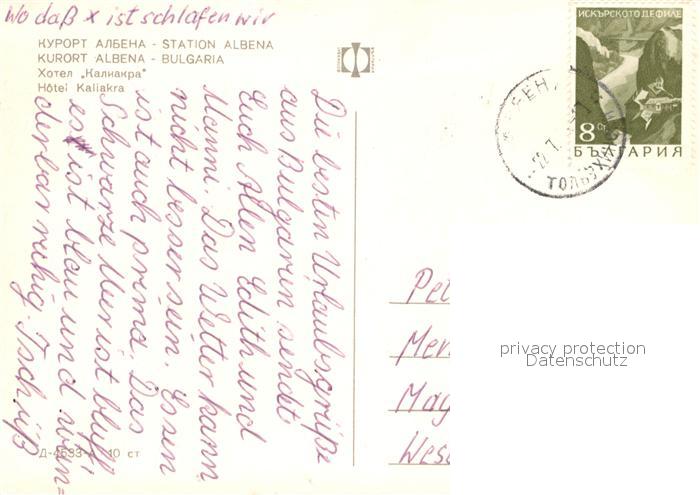 Wo daß x ist schlafen wir
КУРОРТ АЛБЕНА - STATION ALBENA
KURORT ALBENA - BULGARIA
Хотел „Калиакра"
Hôtel Kaliakra
Die besten Urlaubsgrüße
aus Bulgarien sendet
Euch Allen Edith und
Manni. Das Wetter kann
nicht besser sein. Essen
ist auch prima. Das
Schwarze Meer ist bluff
es ist blau und wun=
derbar ruhig. Tschüß
Д-4533-А 10 ст
ИСКЪРСКОТО ДЕФИЛЕ
8 Ст.
БЪЛГАРИЯ
Pet
Mer
Mag
West
privacy protection
Datenschutz